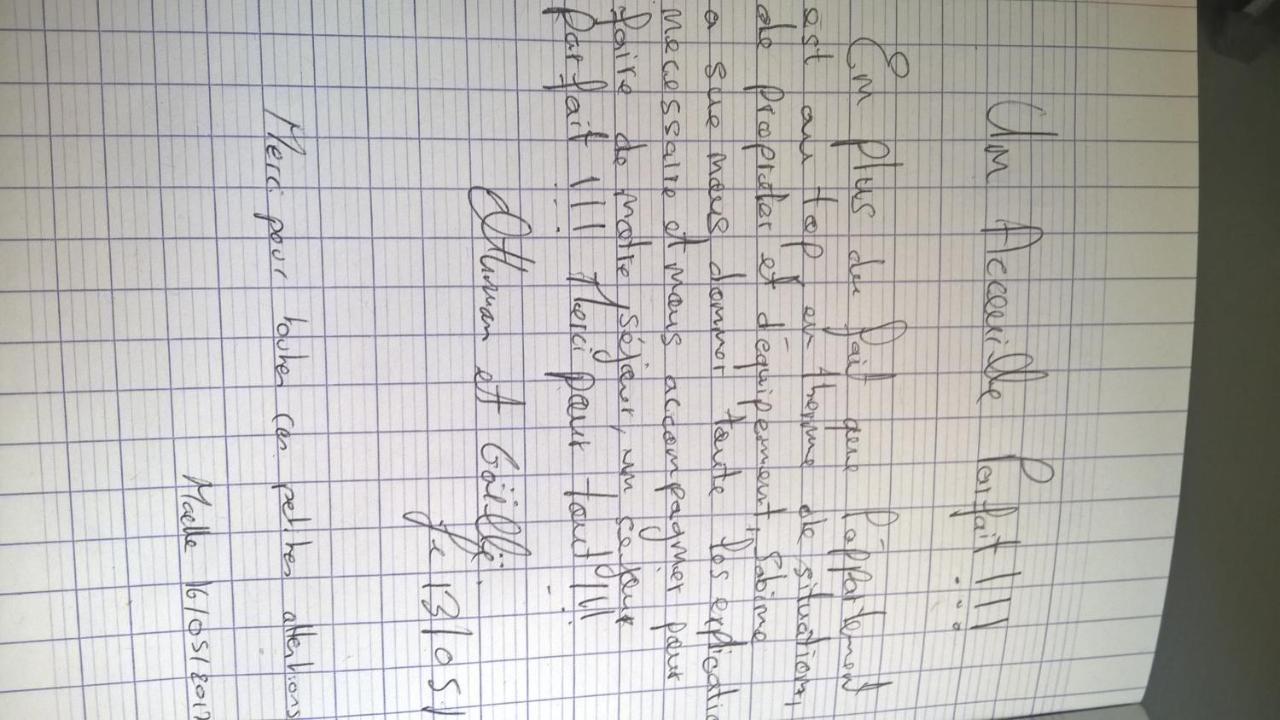 Un Acceuille Parfait !!!
En plus du fait que l'appartement
est au top en therme de situation,
de propreter et d'équipement, Sabine
a sue nous donner toute les explicatio
necessaire et nous accompagner pour
faire de notre séjour, un sejour
parfait !!! Merci pour tout !!!
Othman et Gaëlle.
Le 13/05/
Merci pour toutes ces petites attentions
Maelle 16/05/2017